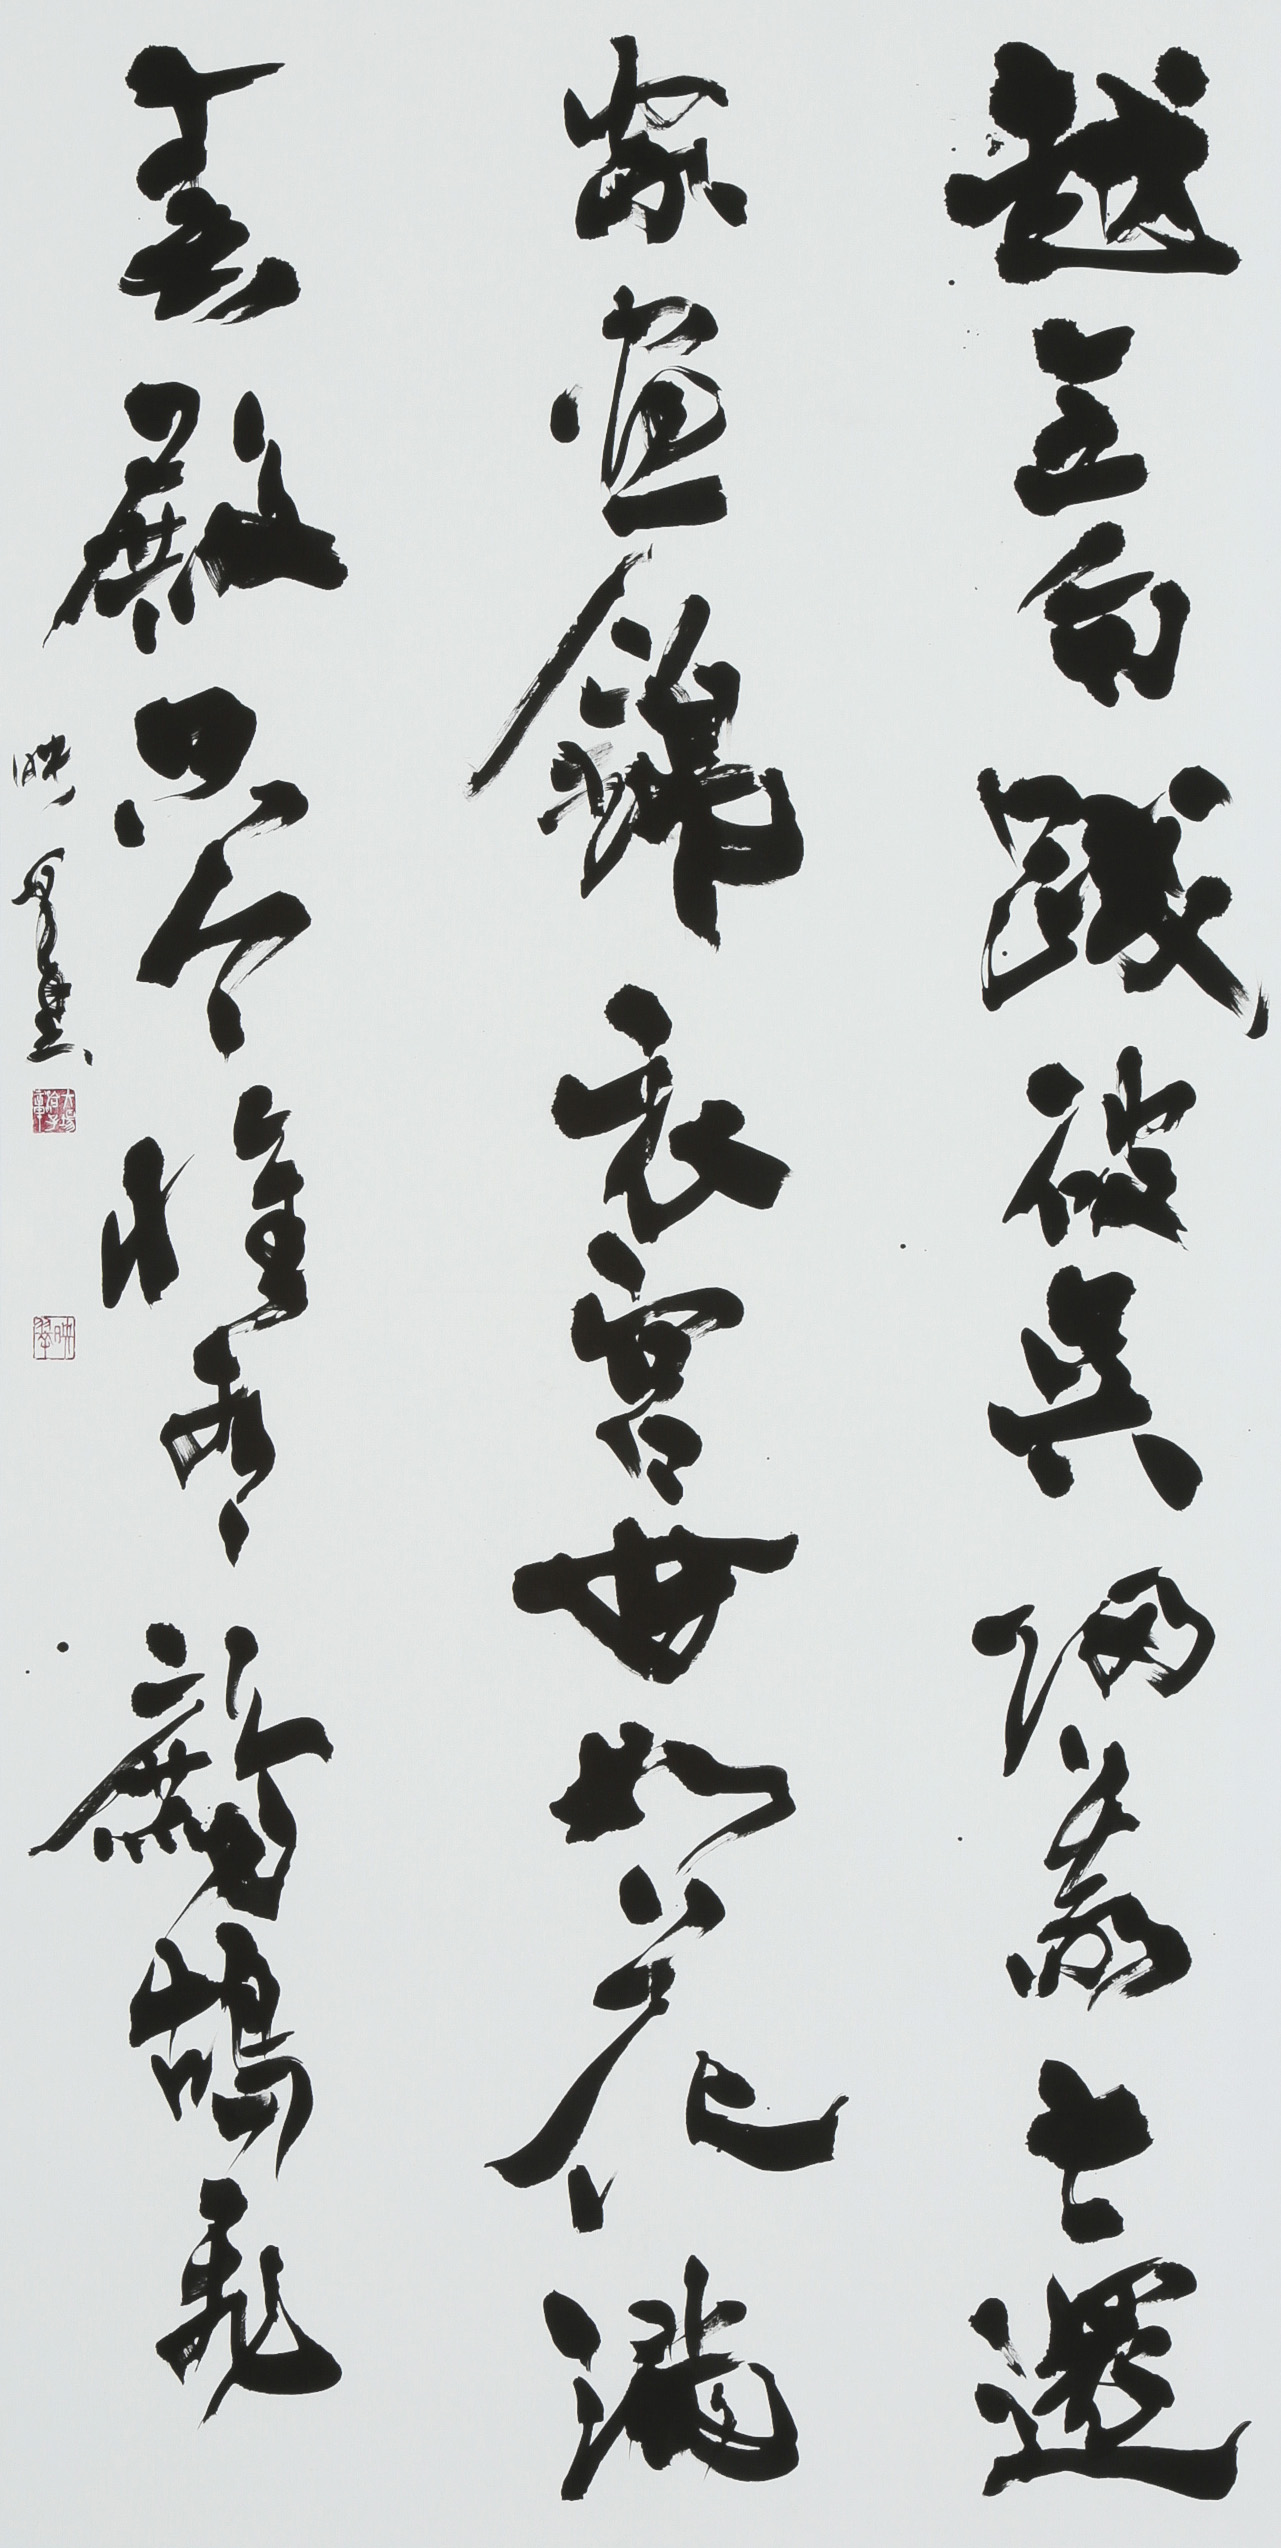 越王句踐破吳歸義士還
家盡錦衣宮女如花滿
春殿只今惟有鷓鴣飛
映翠書
映翠